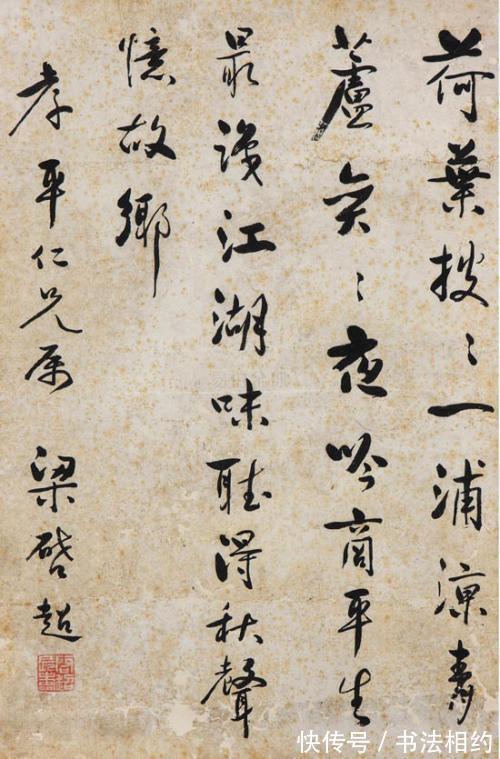 荷葉披〻一浦涼青
蘆奕〻夜吟商平生
最識江湖味聽得秋聲
憶故鄉
孝平仁兄属 梁啓超
快传号 / 书法相约